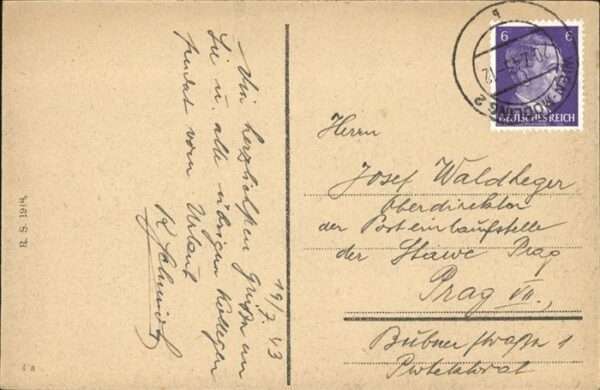 19/7. 43
Die herzlichsten Grüße an
Sie u. alle übrigen Kollegen
sendet vom Urlaub
K. Schmidt
R. S. 1918.
6 6
DEUTSCHES REICH
WIEN MÖDLING 2
Herrn
Josef Waldheger
Oberdirektor
der Posteinlaufstelle
der Stawe Prag
Prag VII.,
Bubnerstraße 1
Protektorat